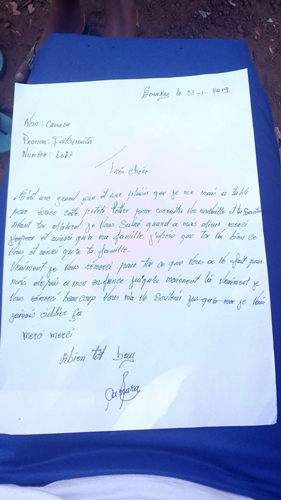 le 23-1-2019
Nom: Camara
Prenom: Fatoumata
Numéro: 6087
Très chère
C'est une grand joie et une plaisir que je me mais a table
pour écrire cette petite lettre pour connaitre vos nouvelle et ta Santée
Avant tou d'abord je vous Salue quand a nous dieux merci
j'espère et aussi qu'a ma famille j'espère que toi va bien ce
vous et aussi qu'a ta famille.
Vraiment je vous remerci pour tou ce que vous a de fait pour
moi depuis a mon enfance jusqu'a maintenant la vraiment je
vous remerci beaucoup vous m'a de Soutenu je vais
jamais oublier ça
Merci merci
Abien tôt bay